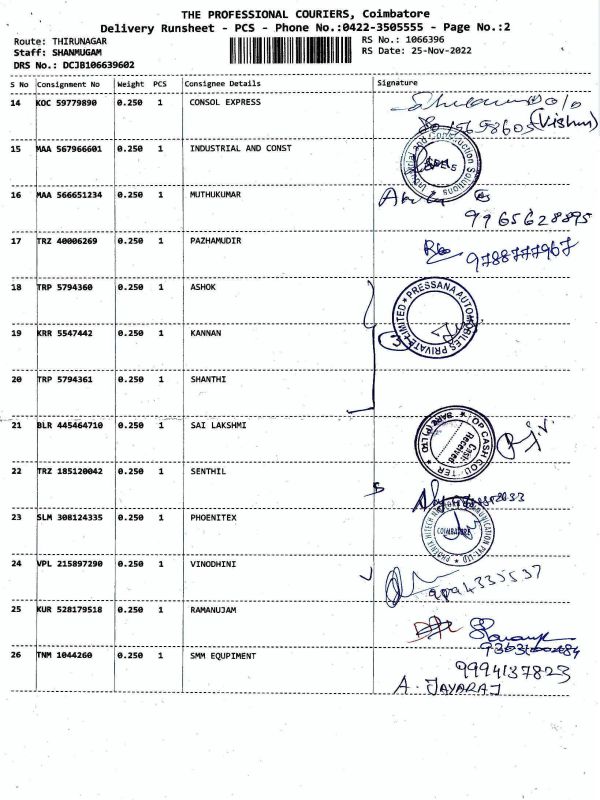 THE PROFESSIONAL COURIERS, Coimbatore
Delivery Runsheet - PCS - Phone No.:0422-3505555 - Page No.:2
Route: THIRUNAGAR RS No.: 1066396
Staff: SHANMUGAM RS Date: 25-Nov-2022
DRS No.: DCJB106639602
S No Consignment No Weight PCS Consignee Details Signature
14 KOC 59779890 0.250 1 CONSOL EXPRESS
(Vishnu)
15 MAA 567966601 0.250 1 INDUSTRIAL AND CONST
Industrial and Construction Solutions
16 MAA 566651234 0.250 1 MUTHUKUMAR
9965628895
17 TRZ 40006269 0.250 1 PAZHAMUDIR
9788777967
18 TRP 5794360 0.250 1 ASHOK
PRESSANA AUTOMOBILES PRIVATE LIMITED
19 KRR 5547442 0.250 1 KANNAN
20 TRP 5794361 0.250 1 SHANTHI
21 BLR 445464710 0.250 1 SAI LAKSHMI
TOP CASH COUNTER
Cash Received
22 TRZ 185120042 0.250 1 SENTHIL
23 SLM 308124335 0.250 1 PHOENITEX
COIMBATORE
24 VPL 215897290 0.250 1 VINODHINI
9094335537
25 KUR 528179518 0.250 1 RAMANUJAM
26 TNM 1044260 0.250 1 SMM EQUPIMENT
9994137823
A. JAYARAJ